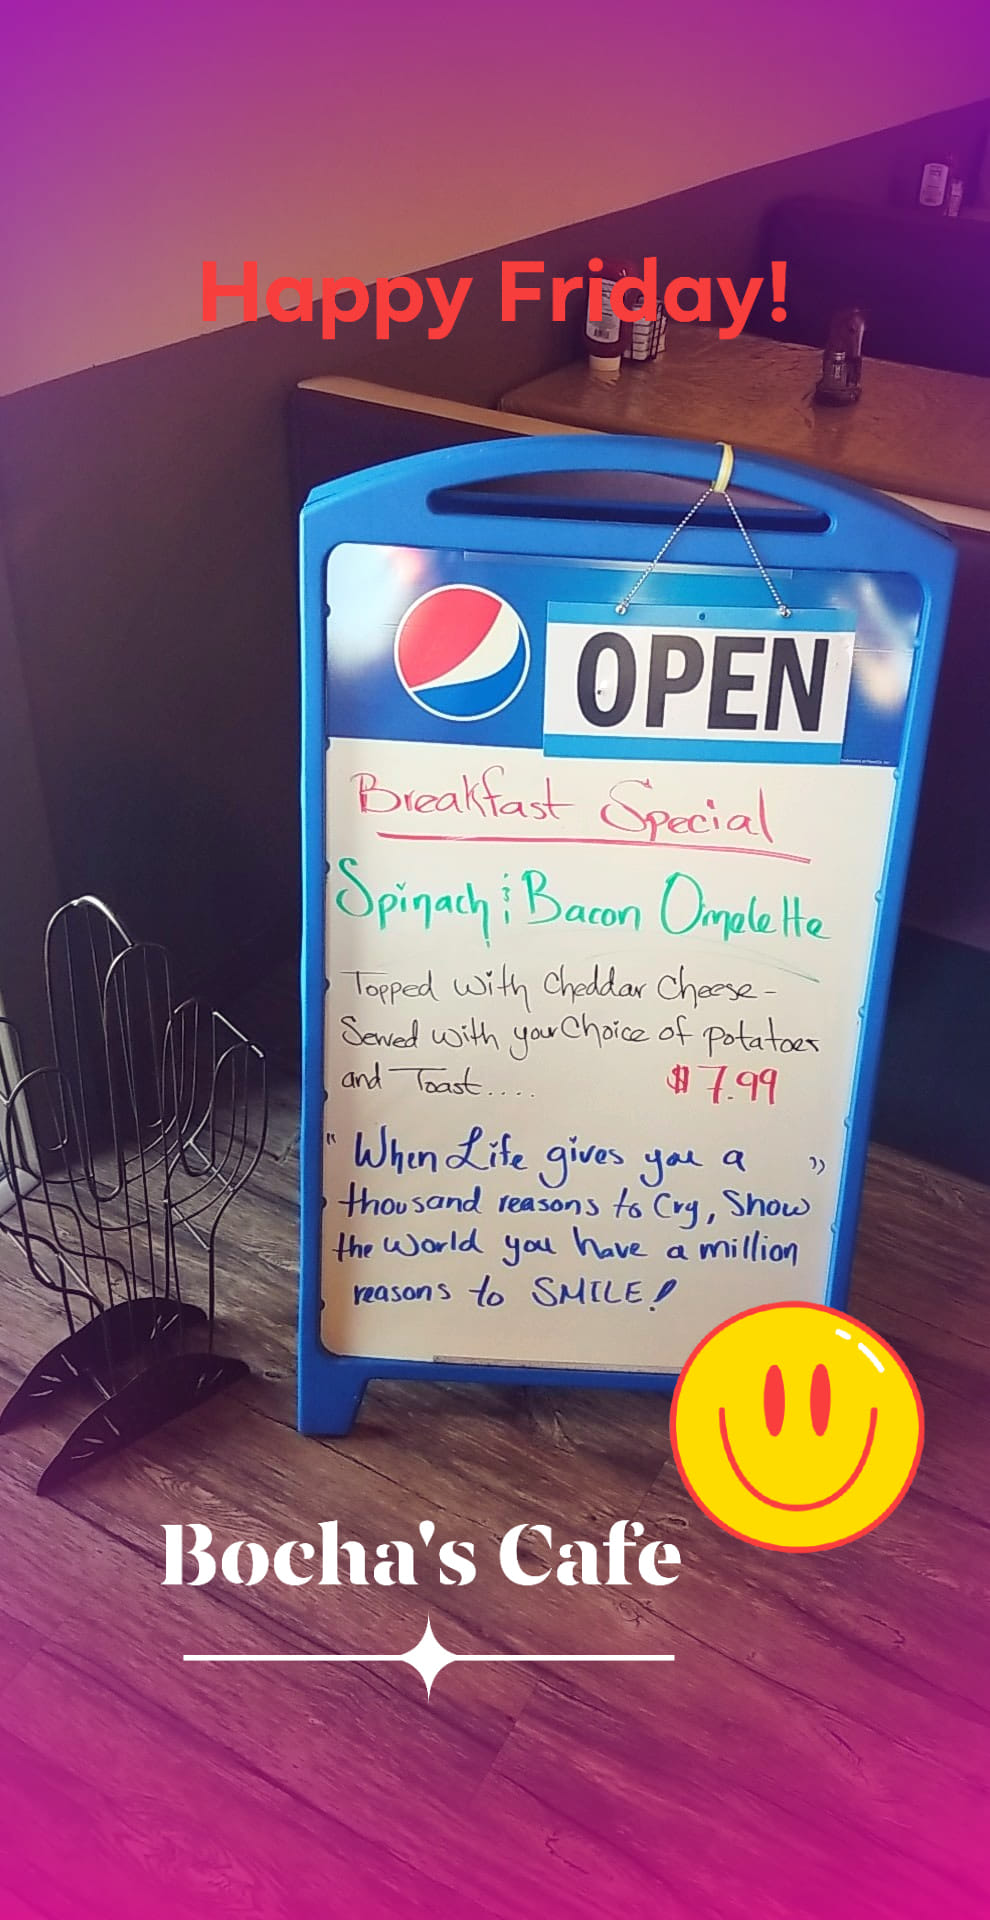 Happy Friday!
OPEN
Breakfast Special
Spinach & Bacon Omelette
Topped with Cheddar Cheese -
Served with your Choice of potatoes
and Toast....
$7.99
"When Life gives you a "
thousand reasons to Cry, Show
the World you have a million
reasons to SMILE!
Bocha's Cafe